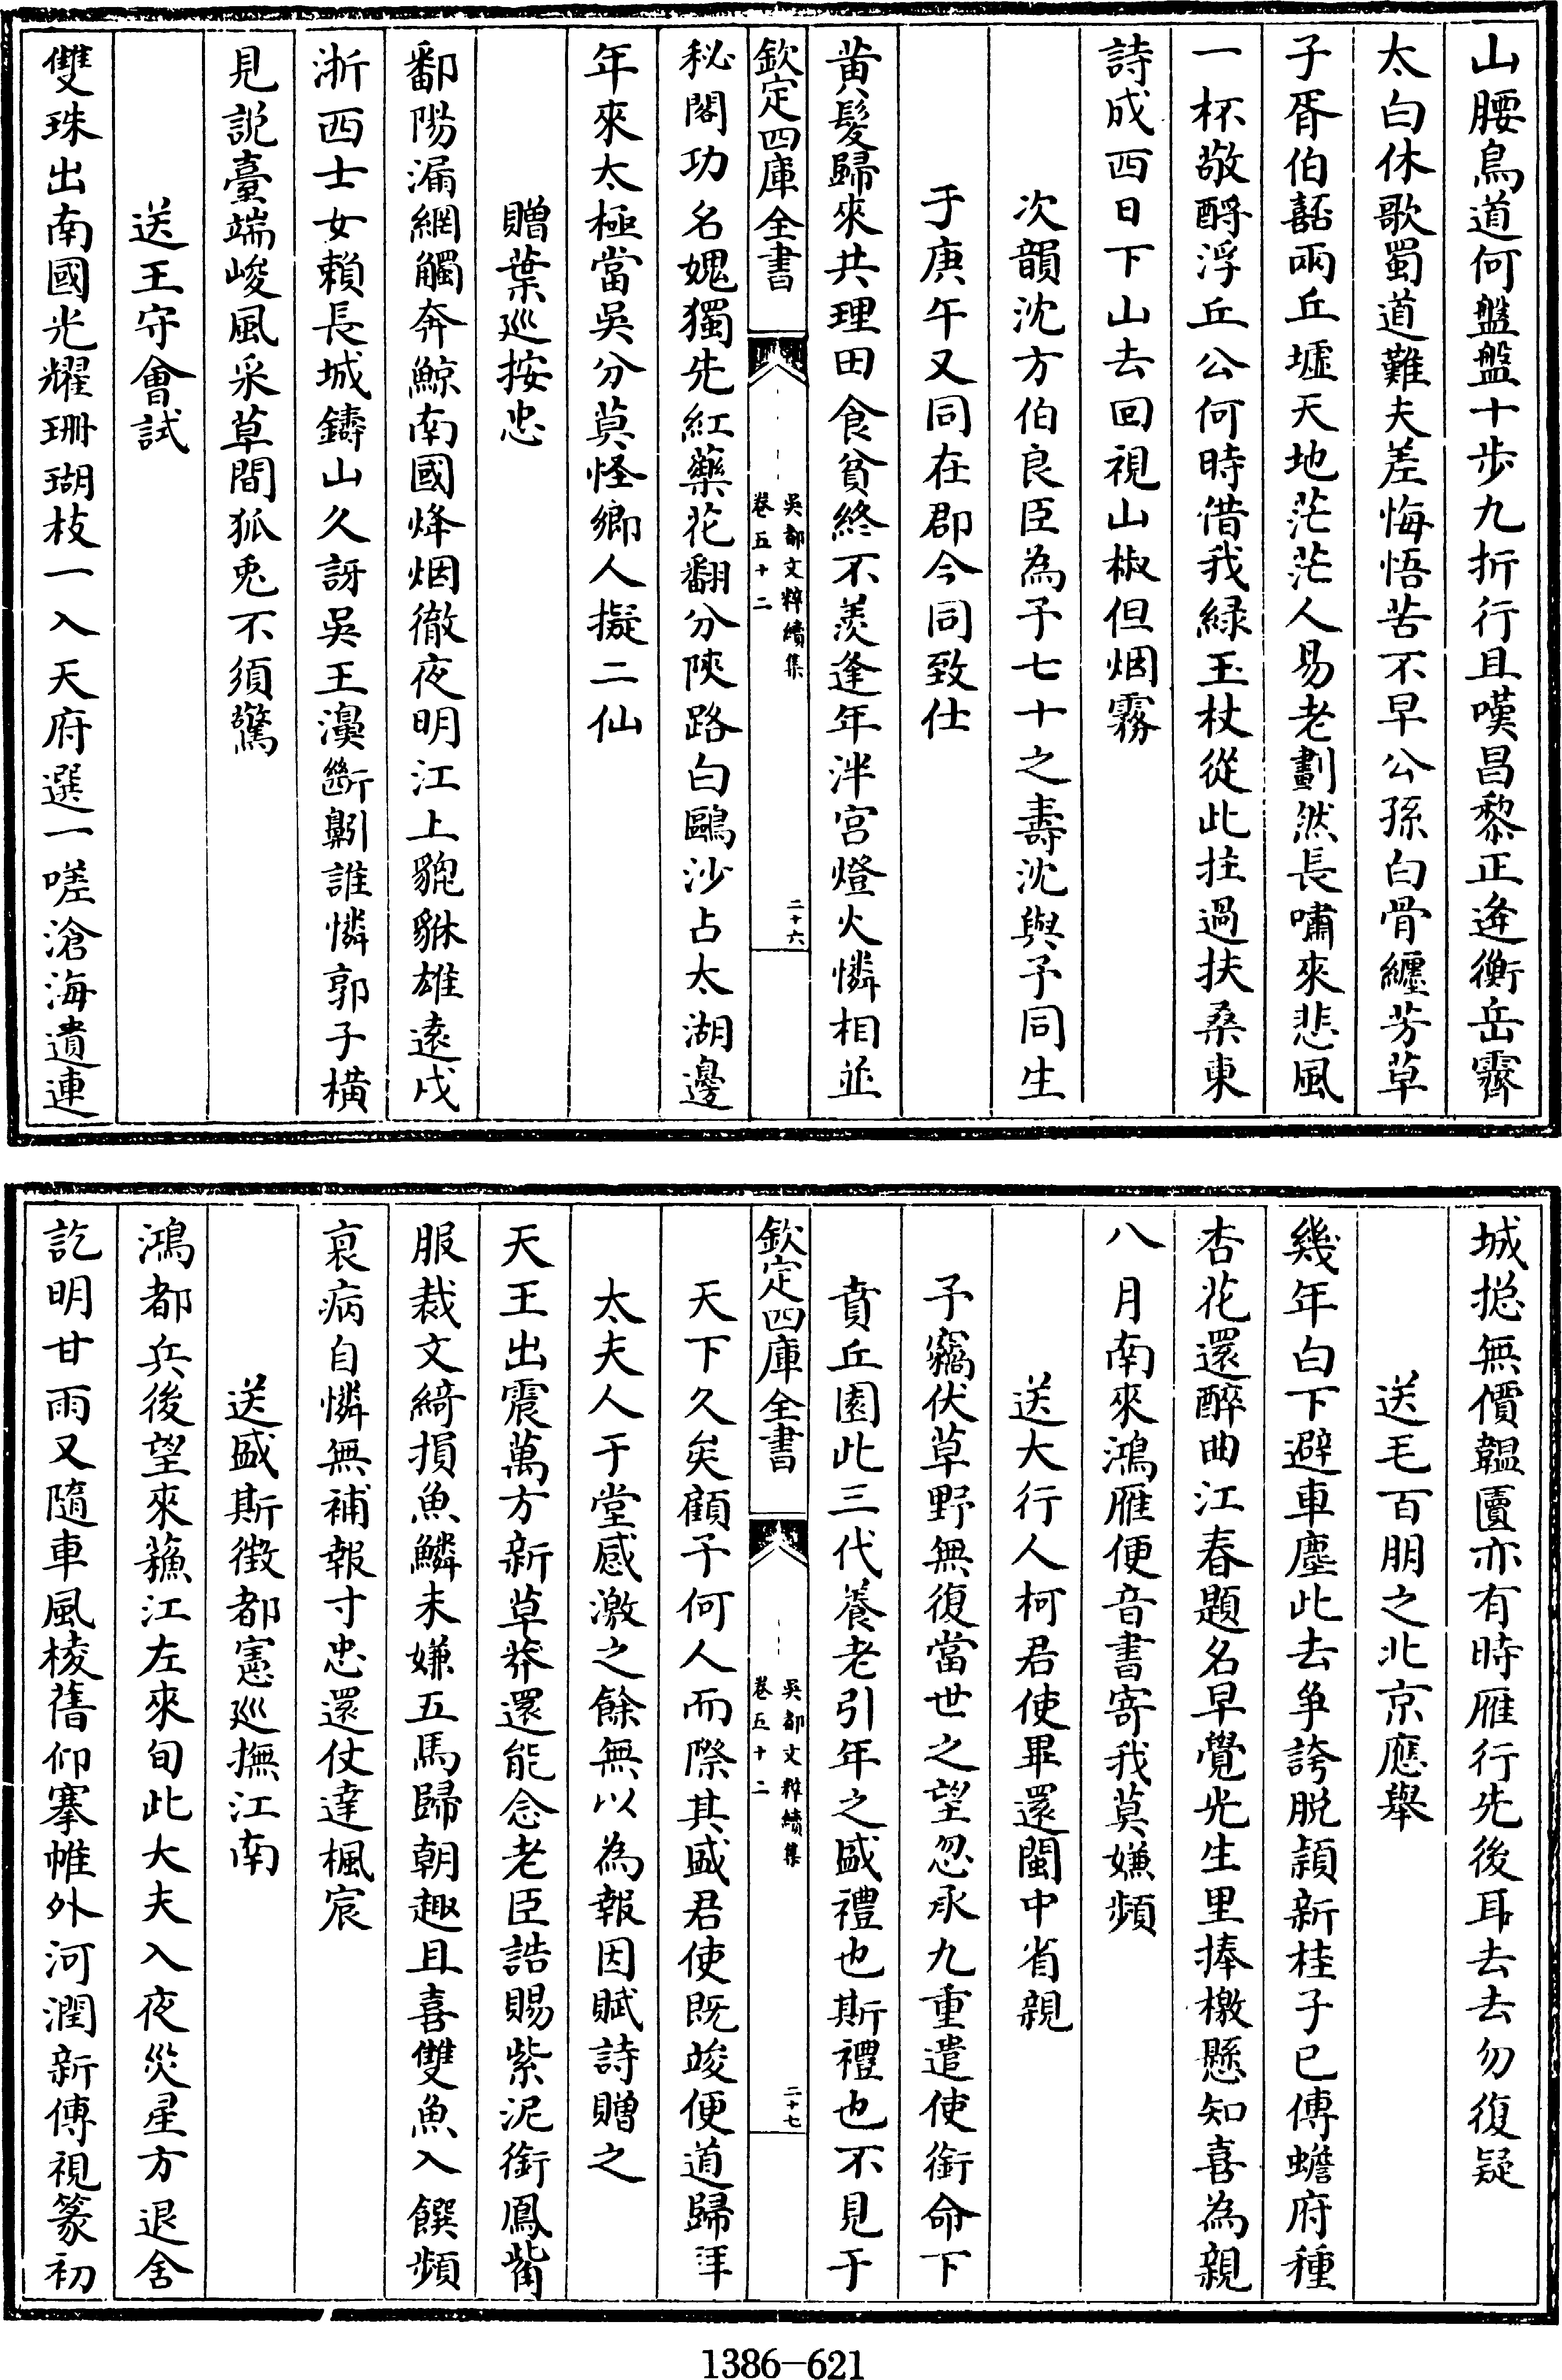 山腰鳥道何盤盤十步九折行且嘆昌黎正逢衡岳霽
太白休歌蜀道難夫差悔悟苦不早公孫白骨纏芳草
子胥伯嚭兩丘墟天地茫茫人易老劃然長嘯來悲風
一杯敬酹浮丘公何時借我緑玉杖從此拄過扶桑東
詩成西日下山去回視山椒但烟霧
次韻沈方伯良臣為予七十之壽沈與予同生
于庚午又同在郡今同致仕
黄髪歸來共理田食貧終不羨逢年泮宫燈火憐相並
欽定四庫全書
吳都文粹續集
卷五十二
二十六
秘閣功名媿獨先紅藥花翻分陜路白鷗沙占太湖邊
年來太極當吳分莫怪鄉人擬二仙
贈葉巡按忠
鄱陽漏網觸奔鯨南國烽烟徹夜明江上貔貅雄遠戍
浙西士女賴長城鑄山久訝吳王濞斷鄛誰憐郭子橫
見説臺端峻風采草間狐兎不須驚
送王守會試
雙珠出南國光耀珊瑚枝一入天府選一嗟滄海遺連
城摠無價韞匵亦有時雁行先後耳去去勿復疑
送毛百朋之北京應舉
幾年白下避車塵此去爭誇脱頴新桂子已傳蟾府種
杏花還醉曲江春題名早覺光生里捧檄懸知喜為親
八月南來鴻雁便音書寄我莫嫌頻
送大行人柯君使畢還閩中省親
予竊伏草野無復當世之望忽承九重遣使銜命下
賁丘園此三代養老引年之盛禮也斯禮也不見于
欽定四庫全書
吳都文粹續集
卷五十二
二十七
天下久矣顧予何人而際其盛君使既竣便道歸拜
太夫人于堂感激之餘無以為報因賦詩贈之
天王出震萬方新草莽還能念老臣誥賜紫泥銜鳳觜
服裁文綺損魚鱗未嫌五馬歸朝趣且喜雙魚入饌頻
衰病自憐無補報寸忠還仗達楓宸
送盛斯徵都憲巡撫江南
鴻都兵後望來蘓江左來旬此大夫入夜災星方退舍
訖明甘雨又隨車風棱舊仰搴帷外河潤新傳視篆初
1386-621